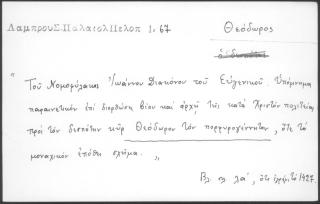 Λαμπρου Σ. Παλαιολ Πελοπ 1. 67
Θεόδωρος
"Τοῦ Νομοφύλακος Ἰωάννου Διακόνου τοῦ Εὐγενικοῦ. Ὑπόμνημα
παραινετικὸν ἐπὶ διορθώσει βίου καὶ ἀρχῇ τῆς κατὰ Χριστὸν πολιτείας
πρὸς τὸν δεσπότην κῦρ Θεόδωρον τὸν πορφυρογέννητον, ὅτε τὸ
μοναχικὸν ἐπόθει σχῆμα. "
Βλ. σελ. λα', ὅτι ἐγράφη τὸ 1427.